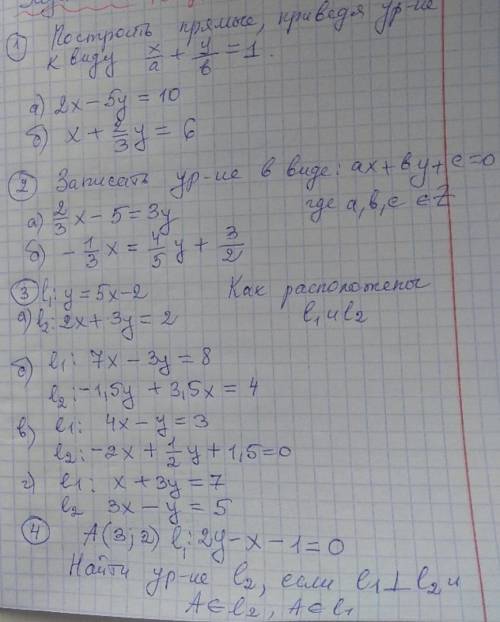 ① Построить прямые, приведя ур-ие
к виду x/a + y/b = 1.
а) 2x - 5y = 10
б) x + 2/3 y = 6
② Записать ур-ие в виде: ax + by + c = 0
где a, b, c ∈ Z
а) 2/3 x - 5 = 3y
б) - 1/3 x = 4/5 y + 3/2
③ l₁: y = 5x - 2 Как расположены
а) l₂: 2x + 3y = 2 l₁ и l₂
б) l₁: 7x - 3y = 8
l₂: -1,5y + 3,5x = 4
в) l₁: 4x - y = 3
l₂: -2x + 1/2 y + 1,5 = 0
г) l₁: x + 3y = 7
l₂ 3x - y = 5
④ A(3; 2) l₁: 2y - x - 1 = 0
Найти ур-ие l₂, если l₁ ⊥ l₂ и
A ∈ l₂, A ∈ l₁